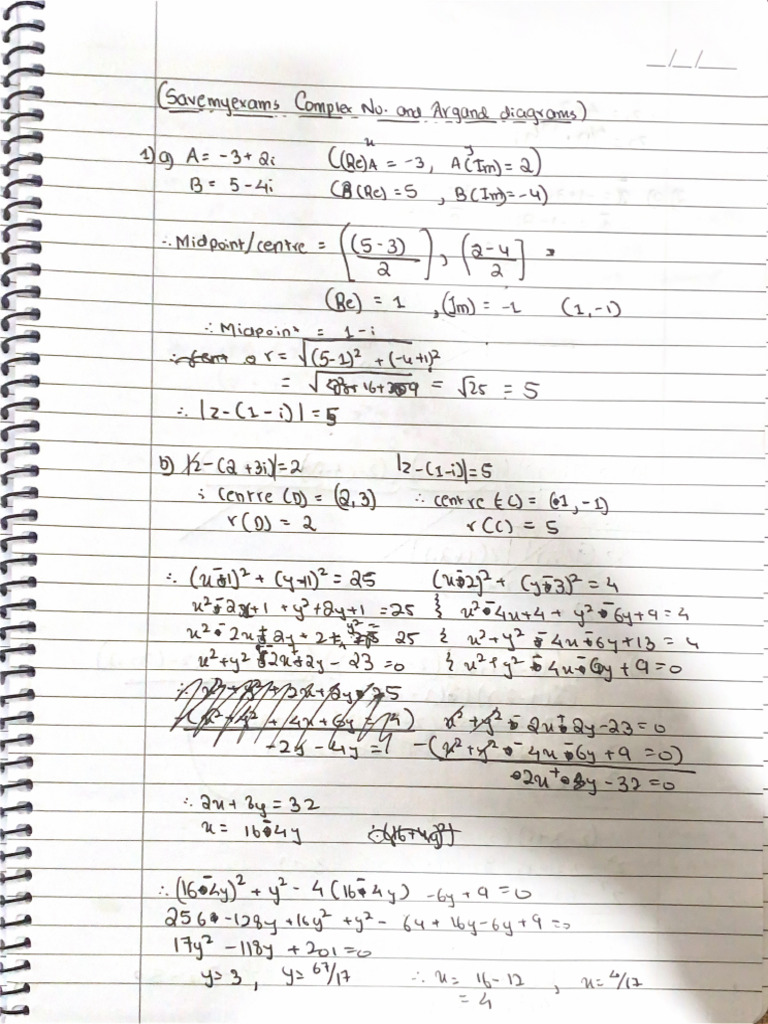 _/_/_
(Savemyexams Complex No. and Argand diagrams)
1) a) A = -3 + 2i ((Re)A = -3, A(Im) = 2)
B = 5 - 4i (B(Re) = 5 , B(Im) = -4)
∴ Midpoint/centre = [(5-3)/2], [2-4/2]
(Re) = 1 , (Im) = -1 (1, -1)
∴ Midpoint = 1-i
r = √(5-1)² + (-4+1)²
= √16+9 = √25 = 5
∴ |z-(1-i)| = 5
b) |z-(2+3i)| = 2 |z-(1-i)| = 5
∴ centre (D) = (2,3) ∴ centre (C) = (1, -1)
r(D) = 2 r(C) = 5
∴ (x-1)² + (y+1)² = 25 (x-2)² + (y-3)² = 4
x² - 2x + 1 + y² + 2y + 1 = 25 } x² - 4x + 4 + y² - 6y + 9 = 4
x² - 2x + 2y + 2 + y² = 25 } x² + y² - 4x - 6y + 13 = 4
x² + y² - 2x + 2y - 23 = 0 } x² + y² - 4x - 6y + 9 = 0
x² + y² - 2x + 2y - 23 = 0
-(x² + y² - 4x - 6y + 9 = 0)
2x + 8y - 32 = 0
∴ 2x + 8y = 32
x = 16 - 4y
∴ (16-4y)² + y² - 4(16-4y) - 6y + 9 = 0
256 - 128y + 16y² + y² - 64 + 16y - 6y + 9 = 0
17y² - 118y + 201 = 0
y = 3 , y = 67/17 ∴ x = 16 - 12 , x = 4/17
= 4